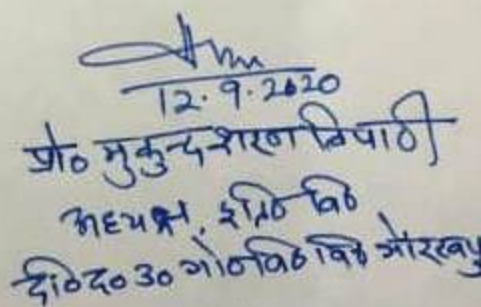 12.9.2020
प्रो० मुकुन्द शरण त्रिपाठी
अध्यक्ष, इति० वि०
दी० द० उ० गो० वि० वि० गोरखपु